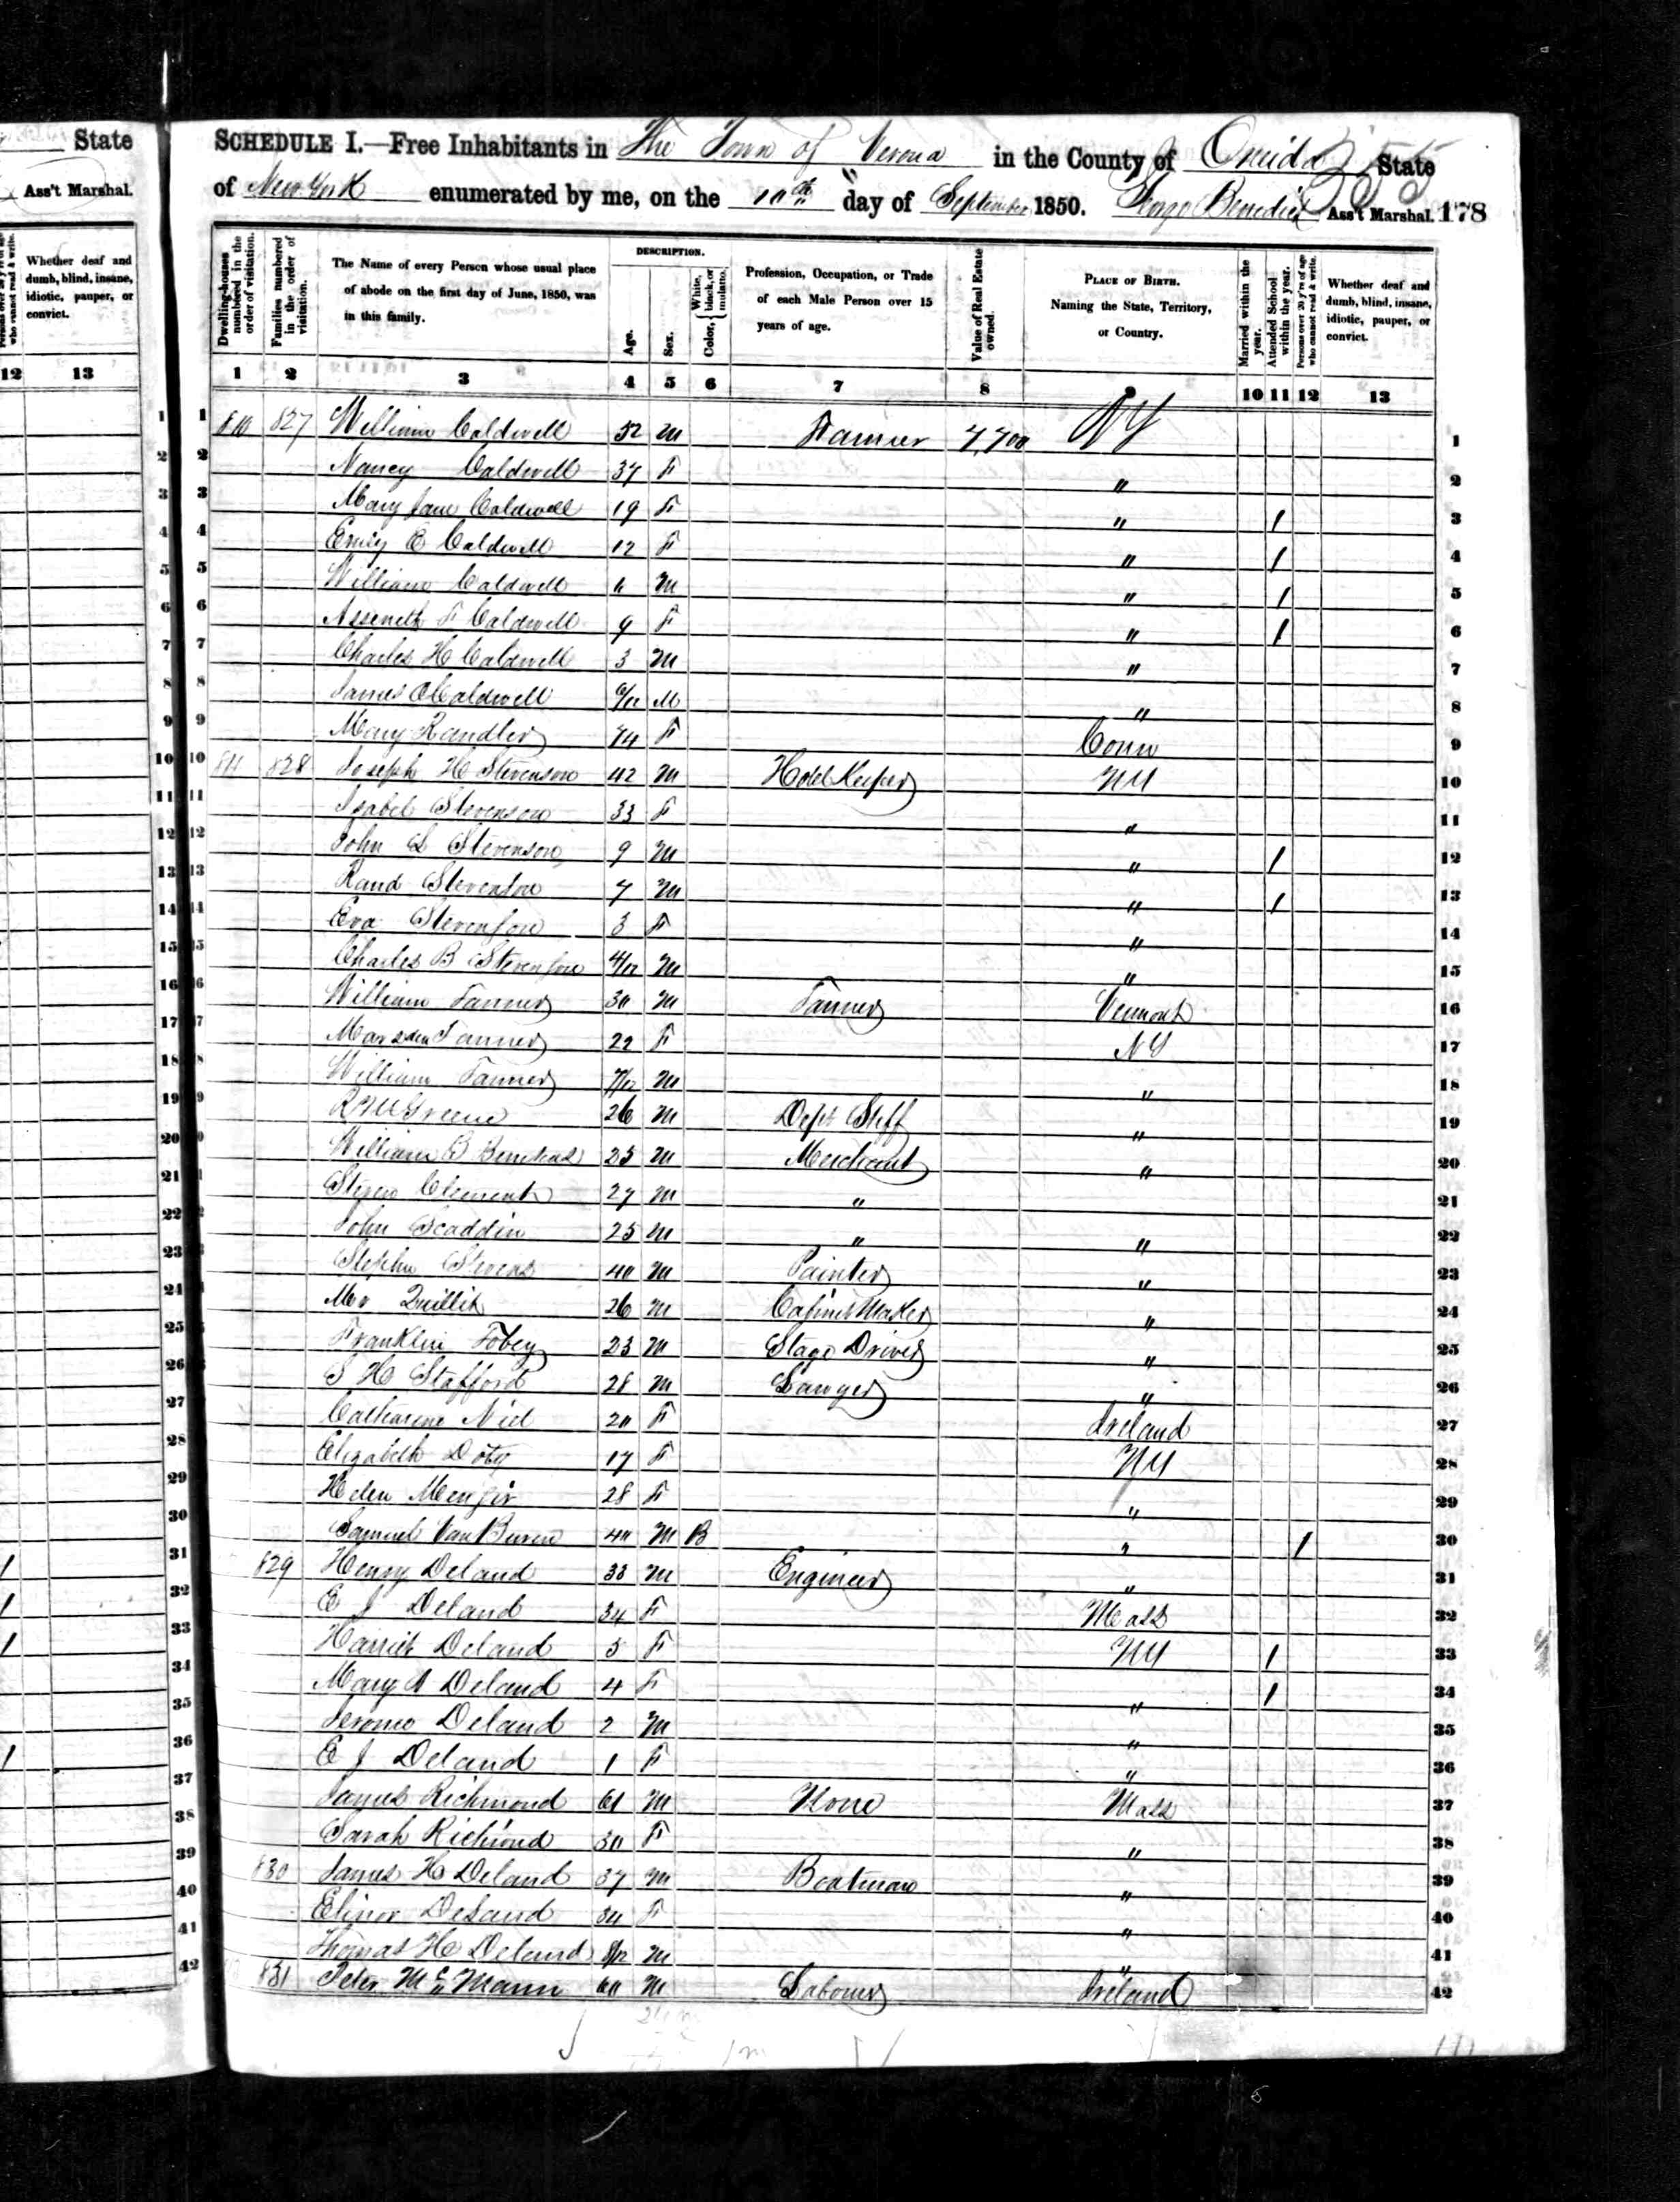 State
Ass't Marshal.
Whether deaf and dumb, blind, insane, idiotic, pauper, or convict.
12 13
SCHEDULE I.—Free Inhabitants in The Town of Verona in the County of Oneida State
of New York enumerated by me, on the 10th day of September 1850. Benedict Ass't Marshal. 178
355
Dwelling-houses numbered in the order of visitation.
Families numbered in the order of visitation.
The Name of every Person whose usual place of abode on the first day of June, 1850, was in this family.
DESCRIPTION.
Age.
Sex.
Color, White, black, or mulatto.
Profession, Occupation, or Trade of each Male Person over 15 years of age.
Value of Real Estate owned.
PLACE OF BIRTH. Naming the State, Territory, or Country.
Married within the year.
Attended School within the year.
Persons over 20 y'rs of age who cannot read & write.
Whether deaf and dumb, blind, insane, idiotic, pauper, or convict.
1 2 3 4 5 6 7 8 9 10 11 12 13
1 810 827 William Caldwell 52 M Farmer 7,700 NY 1
2 Nancy Caldwell 37 F " 2
3 Mary Jane Caldwell 19 F " / 3
4 Emily E Caldwell 12 F " / 4
5 William Caldwell 11 M " / 5
6 Asseneth F Caldwell 9 F " / 6
7 Charles H Caldwell 3 M " 7
8 James Caldwell 6/12 M " 8
9 Mary 74 F Conn 9
10 811 828 Joseph H Stevenson 42 M Hotel Keeper NY 10
11 Isabel Stevenson 33 F " 11
12 John L Stevenson 9 M " / 12
13 Rand Stevenson 7 M " / 13
14 Eva Stevenson 3 F " 14
15 Charles B Stevenson 4/12 M " 15
16 William Tanner 30 M Vermont 16
17 Tanner 22 F NY 17
18 William Tanner 7/12 M " 18
19 Greene 26 M " 19
20 William B 25 M Merchant " 20
21 Clement 27 M " 21
22 John Scaddin 25 M " " 22
23 Stephen Stevens 40 M Painter " 23
24 Mr 26 M Cabinet Maker " 24
25 Franklin Tobey 23 M Stage Driver " 25
26 S H Stafford 28 M Lawyer " 26
27 Catharine Niel 20 F Ireland 27
28 Elizabeth Doty 17 F NY 28
29 Helen 28 F " 29
30 Samuel Van Buren 40 M B " / 30
31 829 Henry Deland 33 M Engineer " 31
32 E J Deland 34 F Mass 32
33 Harriet Deland 5 F NY / 33
34 Mary A Deland 4 F " / 34
35 Jerome Deland 2 M " 35
36 E J Deland 1 F " 36
37 James Richmond 61 M None Mass 37
38 Sarah Richmond 30 F " 38
39 830 James H Deland 37 M Boatman " 39
40 Elinor Deland 34 F " 40
41 Thomas H Deland 8/12 M " 41
42 831 Peter McMann 60 M Labourer Ireland 42